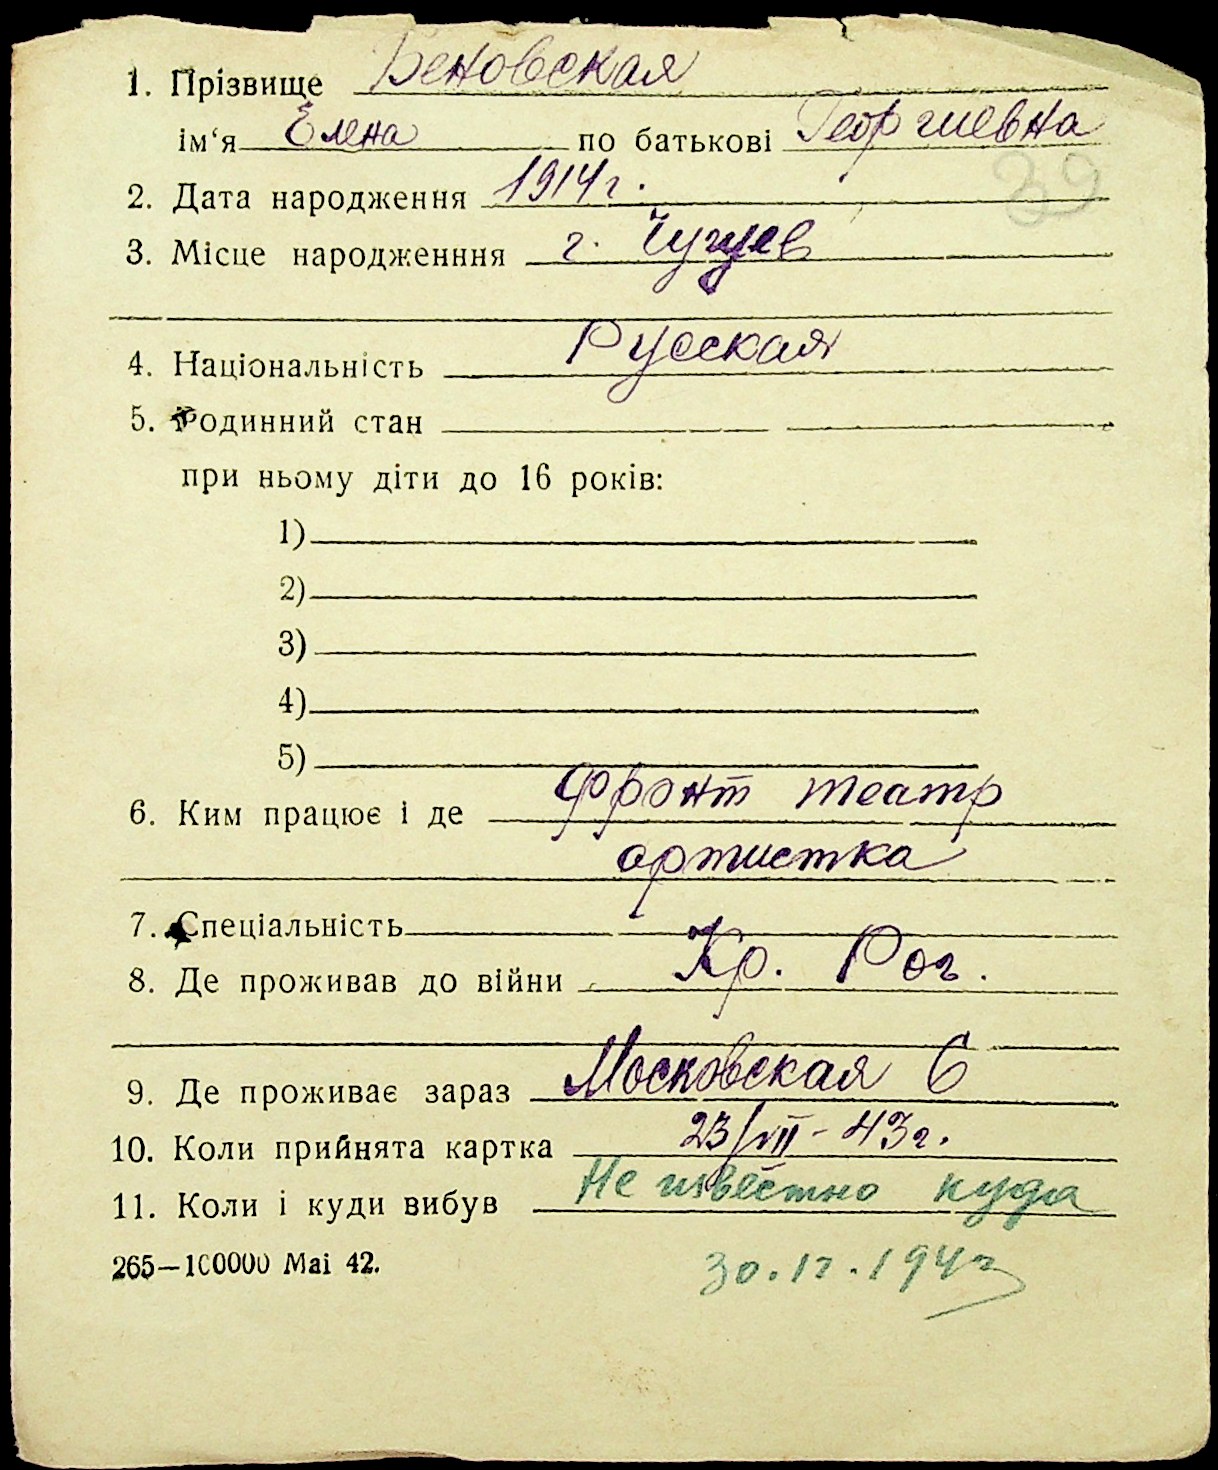 1. Прізвище Беновская
ім‘я Елена по батькові Георгиевна
39
2. Дата народження 1914 г.
3. Місце народженння г. Чугуев
4. Національність Русская
5. Родинний стан
при ньому діти до 16 років:
1)
2)
3)
4)
5)
6. Ким працює і де фронт театр
артистка
7. Спеціальність
8. Де проживав до війни Кр. Рог.
9. Де проживає зараз Московская 6
10. Коли прийнята картка 23/VII - 43 г.
11. Коли і куди вибув Не известно куда
265—100000 Mai 42.
30.12.194